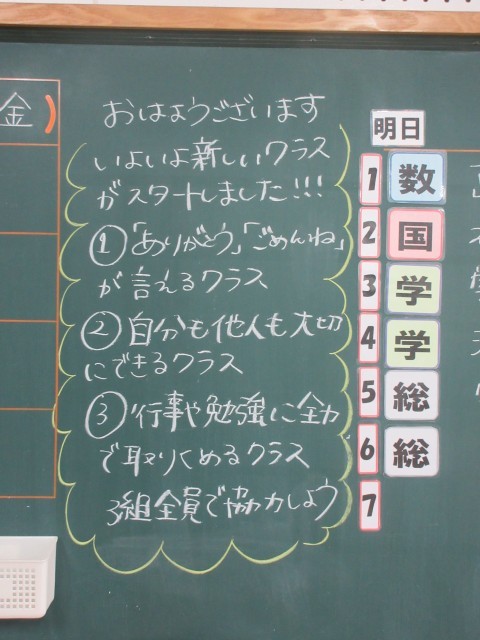 金)
おはようございます
いよいよ新しいクラス
がスタートしました!!!
①「ありがとう」「ごめんね」
が言えるクラス
②自分も他人も大切
にできるクラス
③行事や勉強に全力
で取りくめるクラス
3組全員で協力しよう
明日
1 数
2 国
3 学
4 学
5 総
6 総
7